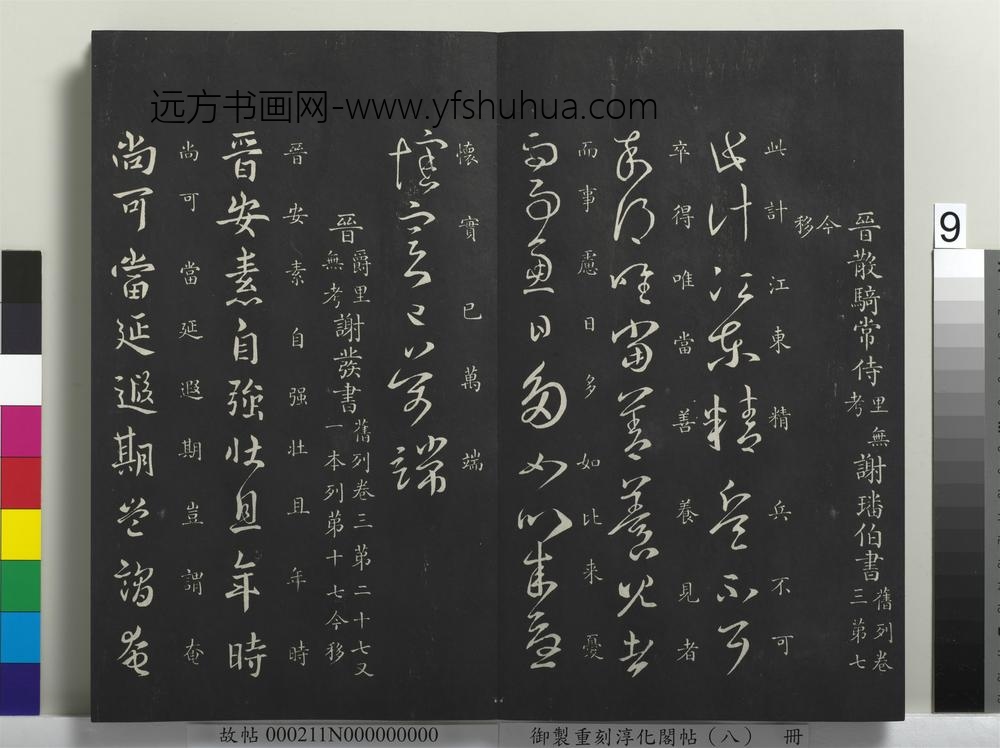 远方书画网-www.yfshuhua.com
9
晉散騎常侍里無考謝璠伯書舊列卷三第七
今移
此計江東精兵不可
此計江東精兵不可
卒得唯當善養見者
卒得唯當善養見者
而事慮日多如比來憂
而事慮日多如比來憂
懷實已萬端
懷實已萬端
晉爵里無考謝發書舊列卷三第二十七又一本列第十七今移
晉安素自强壯且年時
晉安素自強壯且年時
尚可當延遐期豈謂奄
尚可當延遐期豈謂奄
故帖000211N000000000
御製重刻淳化閣帖(八) 冊